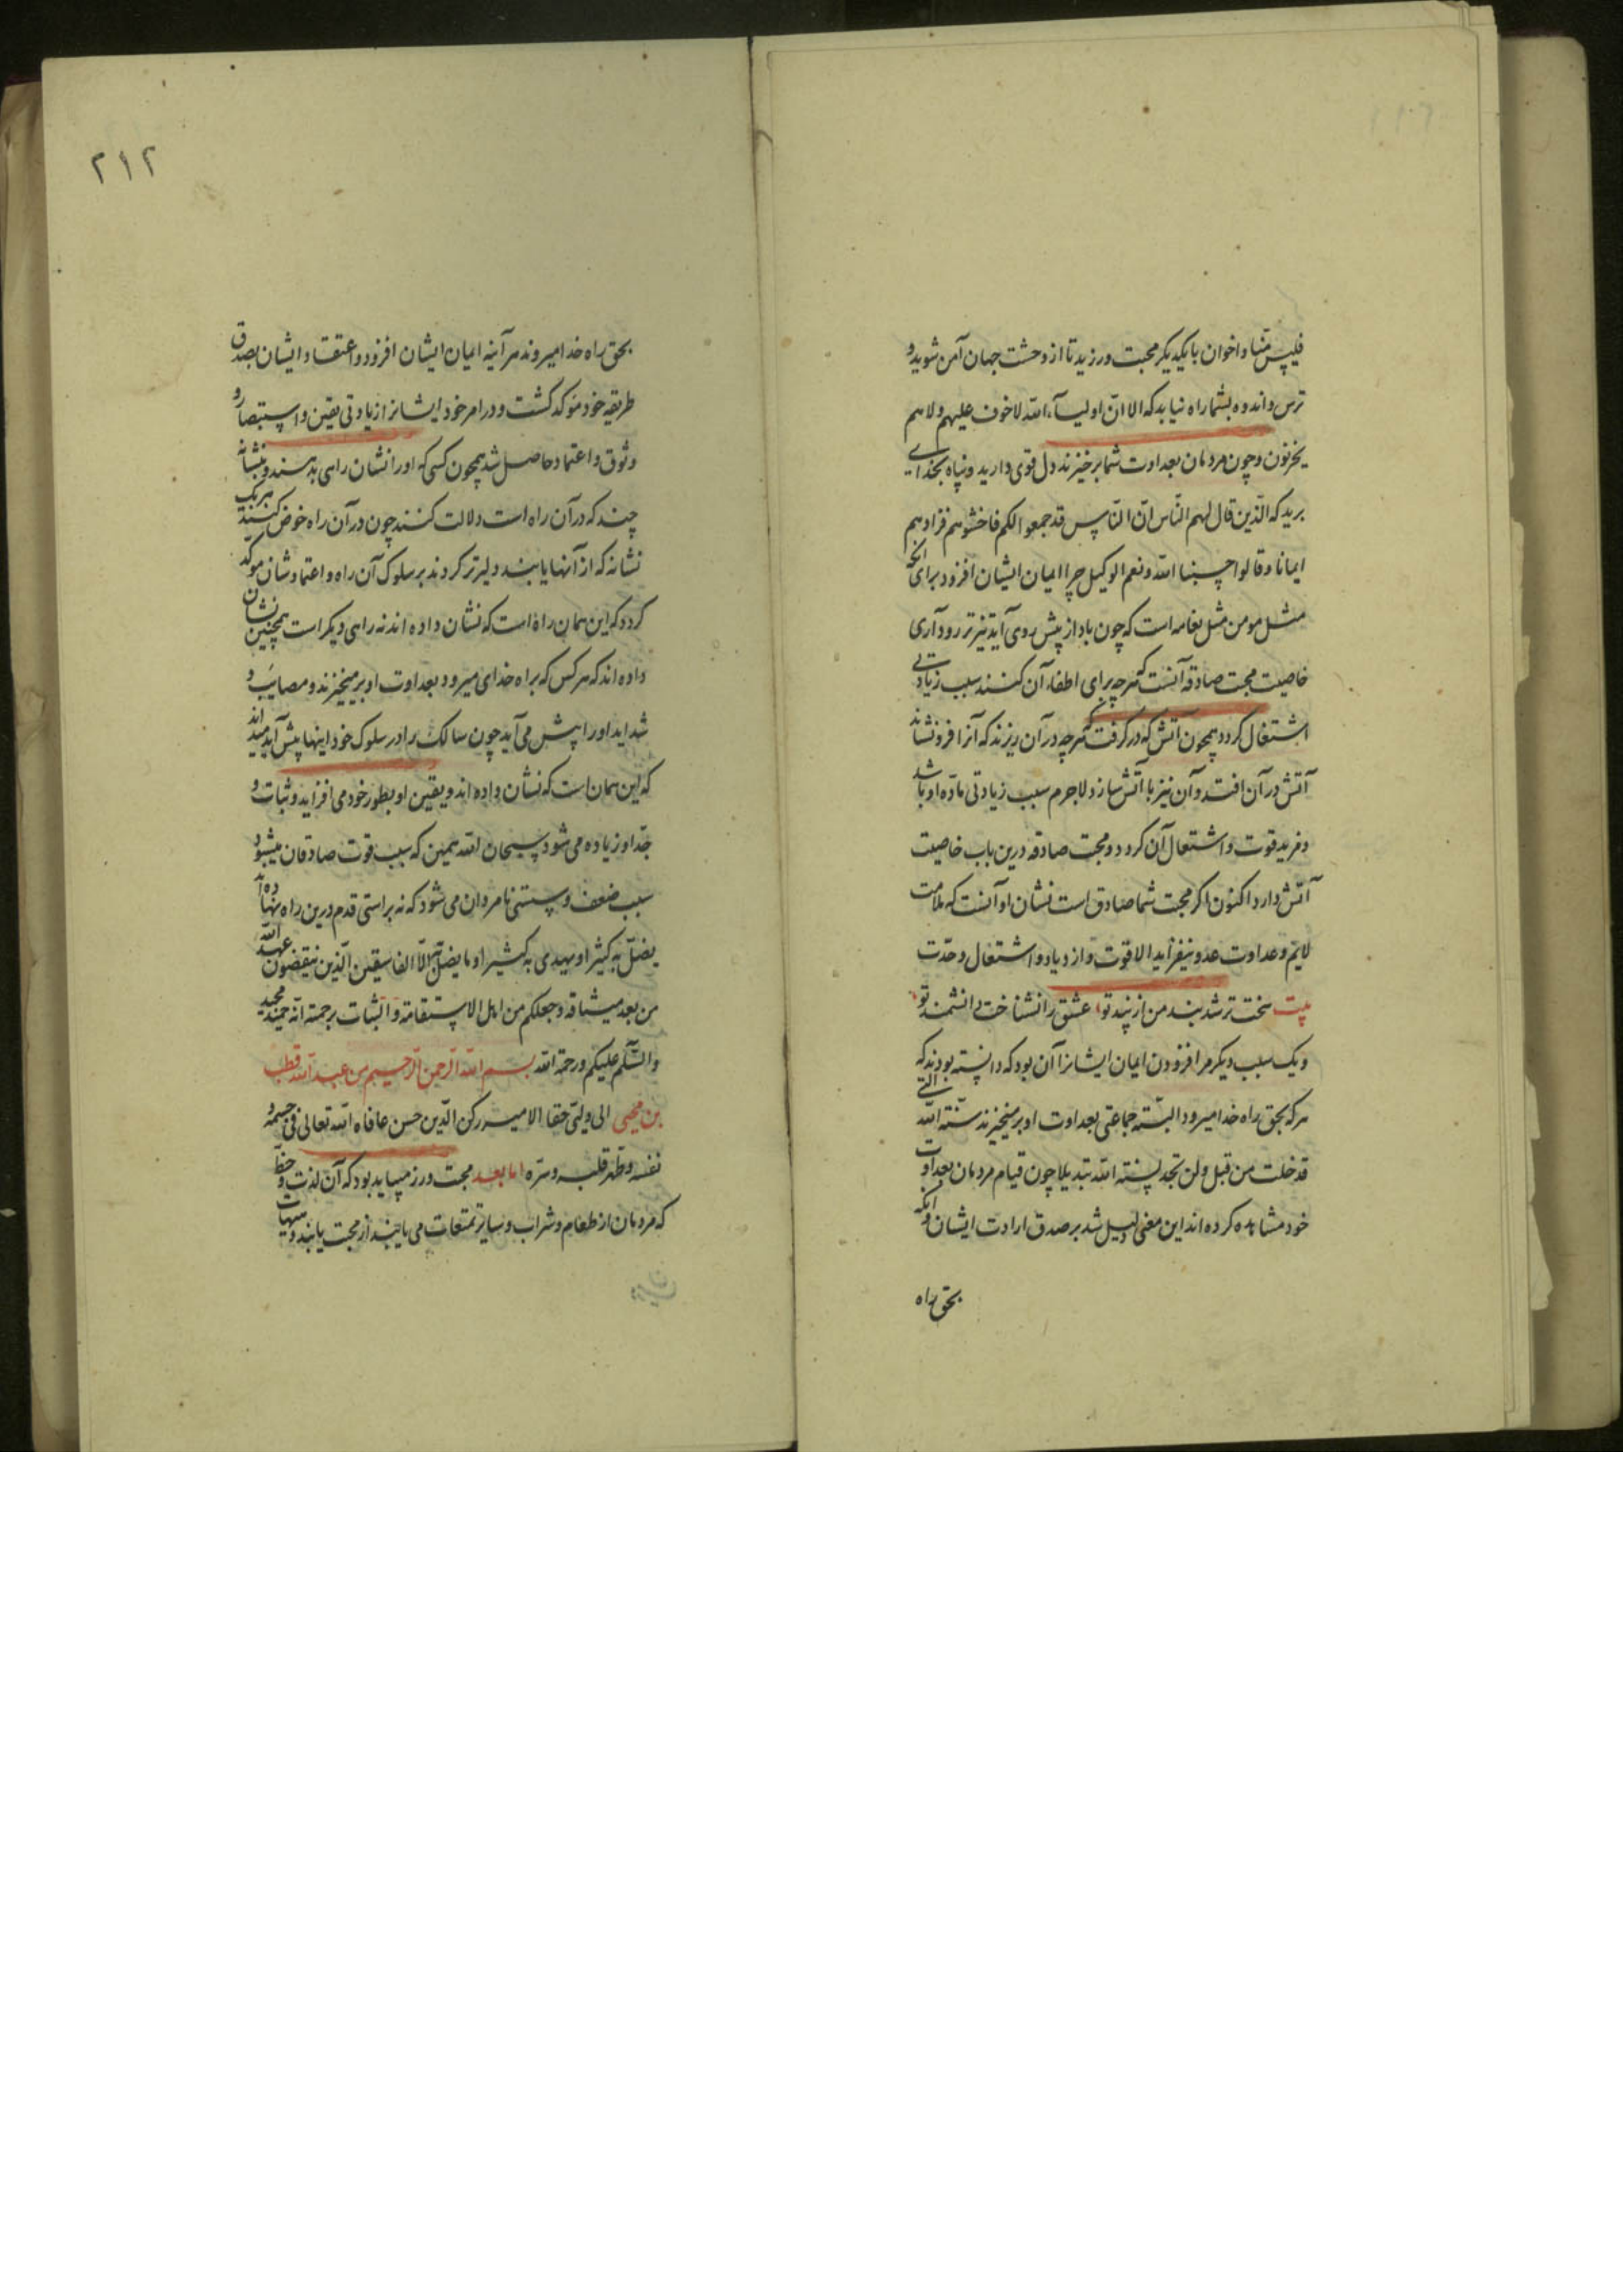 فلیس منا و اخوان با یکدیگر محبت ورزید تا از وحشت جهان آمن شوید و
ترس و اندوه بشما راه نیابد که الا ان اولیآء الله لا خوف علیهم ولا هم
یحزنون و چون مردمان بعداوت شما برخیزند دل قوی دارید و پناه بخدای
برید که الذین قال لهم الناس ان الناس قد جمعوا لکم فاخشوهم فزادهم
ایمانا و قالوا حسبنا الله و نعم الوکیل چرا ایمان ایشان افزود برای آنکه
مثل مومن مثل نعامه است که چون باد از پیش روی آید تیزتر رود آری
خاصیت محبت صادقه آنست که هرچه برای اطفاء آن کنند سبب زیادتی
اشتعال گردد همچون آتش که در گرفت هرچه در آن ریزند که آنرا فرونشاند
آتش در آن افتد و آن نیز با آتش سازد لاجرم سبب زیادتی ماده او باشد
و مزید قوت و اشتعال آن گردد و محبت صادقه درین باب خاصیت
آتش دارد اکنون اگر محبت شما صادق است نشان او آنست که ملامت
لایم و عداوت عدو نیفزاید الا قوت و ازدیاد و اشتعال و حدت
بیت سخت تر شد بند من از پند تو عشق را نشناخت دانشمند تو
و یک سبب دیگر مر افزودن ایمان ایشانرا آن بود که دانسته بودند که
هرکه بحق راه خدا میرود البته جماعتی بعداوت او برمیخیزند سنة الله التی
قد خلت من قبل ولن تجد لسنة الله تبدیلا چون قیام مردمان بعداوت
خود مشاهده کرده اند این معنی دلیل شد بر صدق ارادت ایشان و آنکه
بحق راه
۲۱۲
بحق راه خدا میروند هر آینه ایمان ایشان افزود و اعتقاد ایشان بصدق
طریقه خود موکد گشت و در امر خود ایشانرا زیادتی یقین و استبصار و
وثوق و اعتماد حاصل شد همچون کسی که او را نشان راهی بدهند و بنشانه
چند که در آن راه است دلالت کنند چون در آن راه خوض کنند بهر یک
نشانه که از آنها یابند دلیرتر گردند بر سلوک آن راه و اعتمادشان موکد
گردد که این همان راه است که نشان داده اند نه راهی دیگر است همچنین نشان
داده اند که هر کس که براه خدای میرود بعداوت او برمیخیزند و مصایب و
شداید او را پیش می آید چون سالک را در سلوک خود اینها پیش آید میداند
که این همان است که نشان داده اند و یقین او بطور خود می افزاید و ثبات و
جد او زیاده می شود سبحان الله همین که سبب قوت صادقان میشود
سبب ضعف و سستی نامردان می شود که نه براستی قدم درین راه نهاده اند
یضل به کثیرا و یهدی به کثیرا و ما یضل به الا الفاسقین الذین ینقضون عهد الله
من بعد میثاقه و جعلکم من اهل الاستقامة و الثبات برحمته انه حمید مجید
والسلم علیکم ورحمة الله بسم الله الرحمن الرحیم من عبد الله قطب
بن محیی الی ولیی حقا الامیر رکن الدین حسن عافاه الله تعالی فی جسمه و
نفسه و طهر قلبه و سره اما بعد محبت ورز میباید بود که آن لذت و حظ
که مردمان از طعام و شراب و سایر تمتعات می یابند از محبت یابند و هیهات